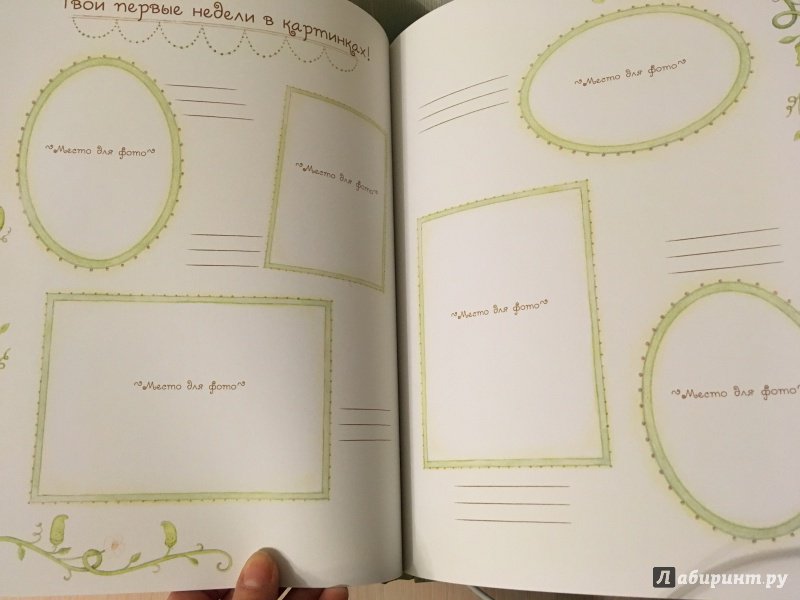 Твои первые недели в картинках!
~Место для фото~
~Место для фото~
~Место для фото~
~Место для фото~
~Место для фото~
~Место для фото~
Лабиринт.ру